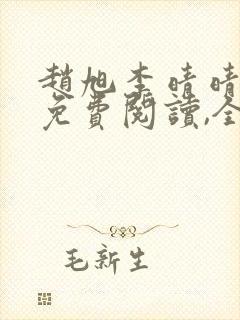 趙旭李晴晴
免費閱讀,全
毛新生